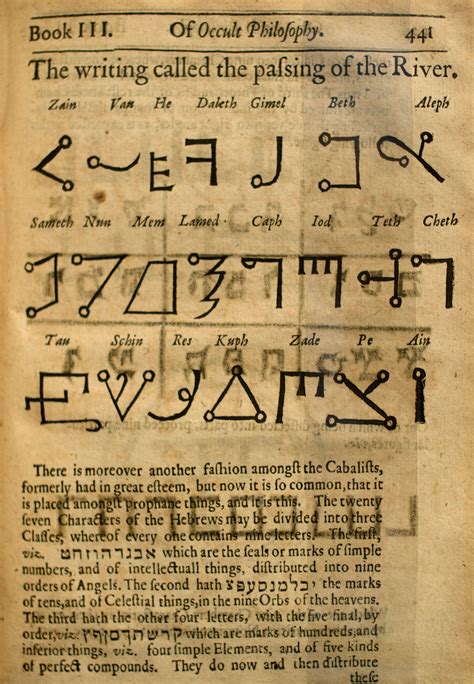 Book III. Of Occult Philoſophy. 441
The writing called the paſſing of the River.
Zain Vau He Daleth Gimel Beth Aleph
Samech Nun Mem Lamed. Caph Iod Teth Cheth
Tau Schin Res Kuph Zade Pe Ain
There is moreover another faſhion amongſt the Cabaliſts,
formerly had in great eſteem, but now it is ſo common, that it
is placed amongſt prophane things, and it is this. The twenty
ſeven Characters of the Hebrews may be divided into three
Claſſes, whereof every one contains nine letters. The firſt,
viz. אבגדהוזחט which are the ſeals or marks of ſimple
numbers, and of intellectuall things, diſtributed into nine
orders of Angels. The ſecond hath יכלמנסעפצ the marks
of tens, and of Celeſtial things, in the nine Orbs of the heavens.
The third hath the other four letters, with the five final, by
order, viz. קרשתךםןףץ which are marks of hundreds, and
inferior things, viz. four ſimple Elements, and of five kinds
of perfect compounds. They do now and then diſtribute
theſe